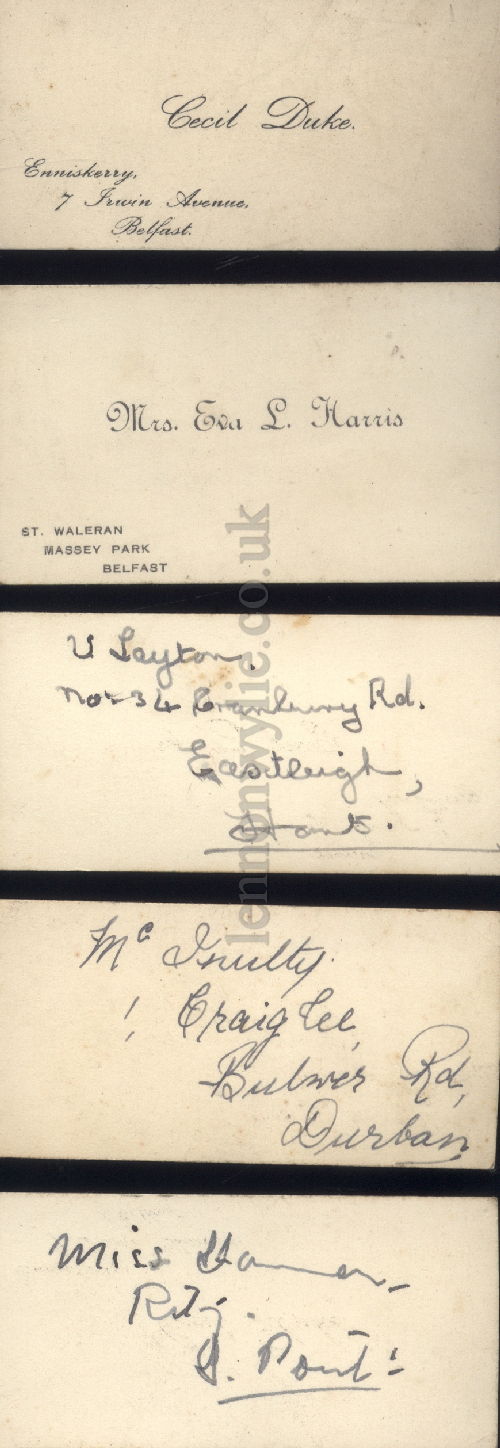 Cecil Duke.
Enniskerry,
7 Irwin Avenue,
Belfast.
Mrs. Eva L. Harris
ST. WALERAN
MASSEY PARK
BELFAST
V Leyton.
No-34 Cranbury Rd.
Eastleigh,
Hants.
Mc Inulty.
1, Craig Lee,
Bulwer Rd,
Durban
Miss
Ritz.
lennonwylie.co.uk